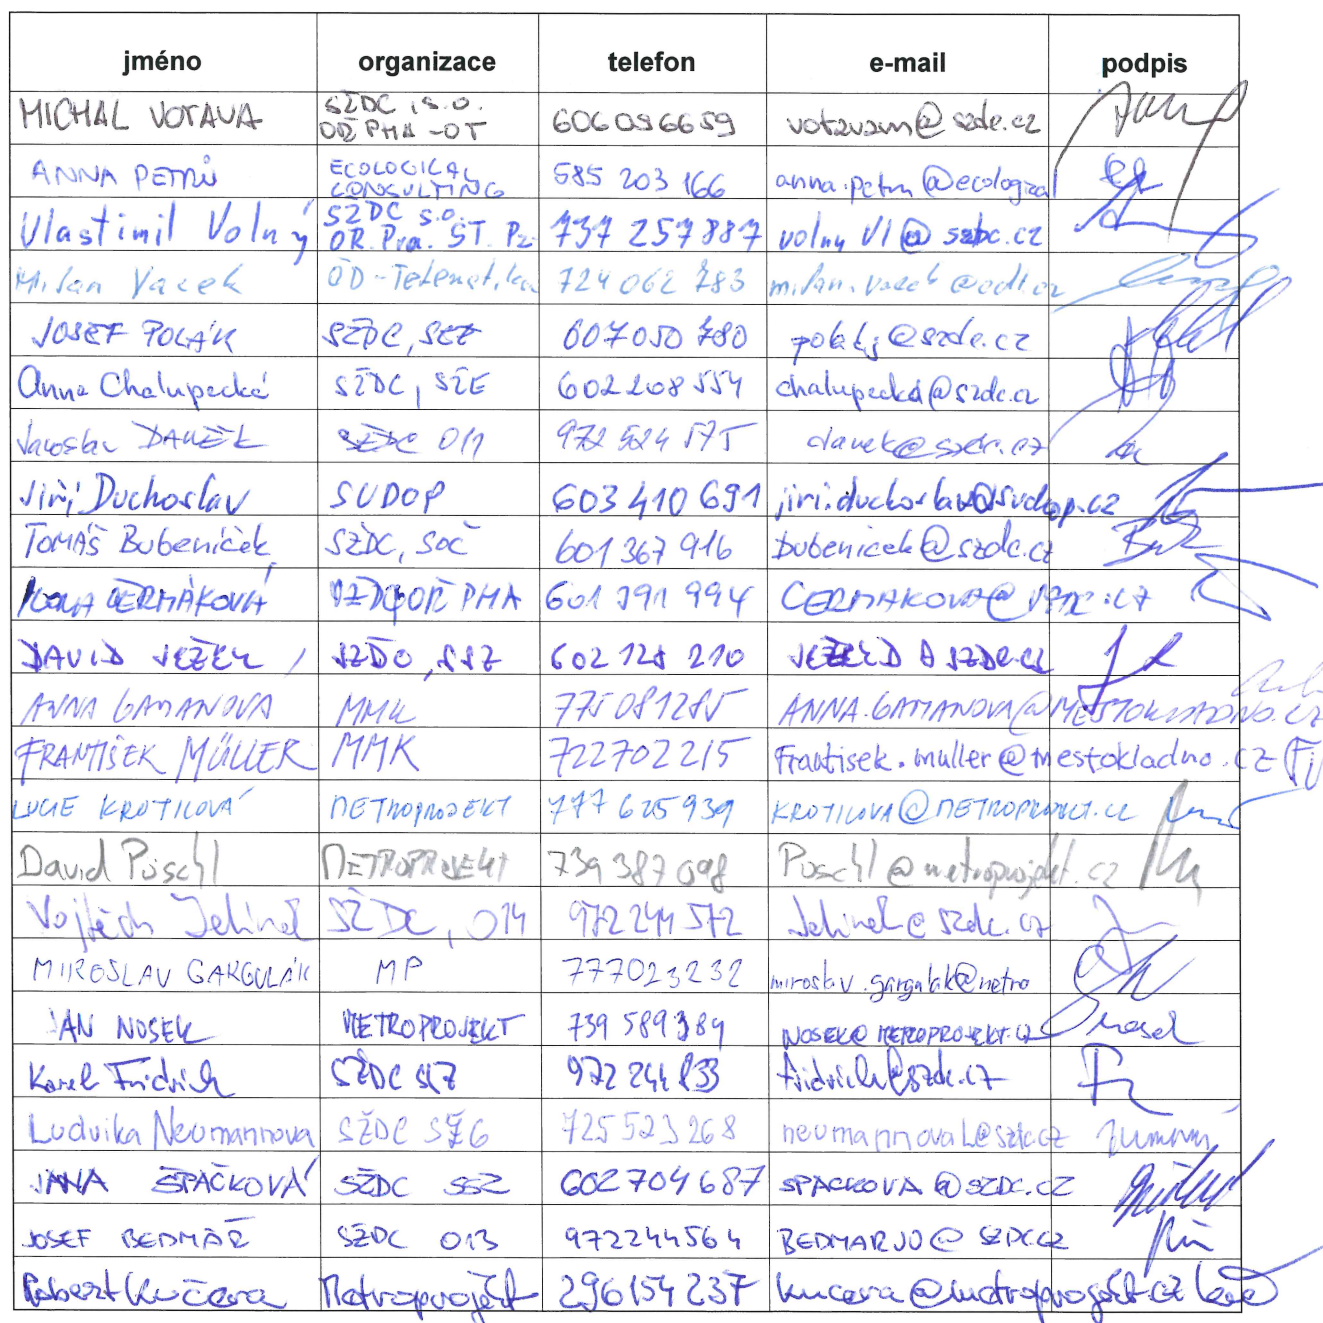 jméno organizace telefon e-mail podpis
MICHAL VOTAVA SŽDC, s.o. OŘ PHA - OT 606096659 votavam@szdc.cz
ANNA PETRŮ ECOLOGICAL CONSULTING 585 203 166 anna.petru@ecological
Vlastimil Volný SŽDC s.o. OŘ. Pra. ST. Pz. 737 257 887 volny Vl@szdc.cz
Milan Vacek ČD-Telematika 724 062 783 milan.vacek@cdt.cz
JOSEF POLÁK SŽDC, SŽE 607 050 780 polakj@szdc.cz
Anna Chalupecká SŽDC, SŽE 602 208 554 chalupecká@szdc.cz
Jaroslav DANĚK SŽDC O11 972 524 575 danek@szdc.cz
Jiří Duchoslav SUDOP 603 410 691 jiri.duchoslav@sudop.cz
TOMÁŠ Bubeníček SŽDC, SOČ 601 367 916 bubenicek@szdc.cz
ČERMÁKOVÁ SŽDC OŘ PHA 601 391 994 CERMAKOVA@szdc.cz
DAVID JEŽEK SŽDC, SSZ 602 128 210 JEZEKD@SZDC.CZ
ANNA GAMANOVA MMK 775 081285 ANNA.GAMANOVA@MESTOKLADNO.CZ
FRANTIŠEK MÜLLER MMK 722702215 frantisek.muller@mestokladno.cz
LUCIE KROTILOVÁ METROPROJEKT 777 625 939 KROTILOVA@METROPROJEKT.CZ
David Pöschl METROPROJEKT 739 387 098 Poschl@metroprojekt.cz
Vojtěch Jelínek SŽDC, O14 972 244 572 Jelinek@szdc.cz
MIROSLAV GARGULÁK MP 777023232 miroslav.gargulak@metro
JAN NOSEK METROPROJEKT 739 589 389 NOSEK@METROPROJEKT.CZ Nosek
Karel Fridrich SŽDC SSZ 972 244 833 fridrich@szdc.cz
Ludvika Neumannova SŽDC SŽG 725 523 268 neumannovaL@szdc.cz
JANA ŠPAČKOVÁ SŽDC SSZ 602 704 687 SPACKOVA@SZDC.CZ
JOSEF BEDNÁŘ SŽDC O13 972244564 BEDNARJO@SZDC.CZ
Robert Kučera Metroprojekt 296 154 237 kucera@metroprojekt.cz